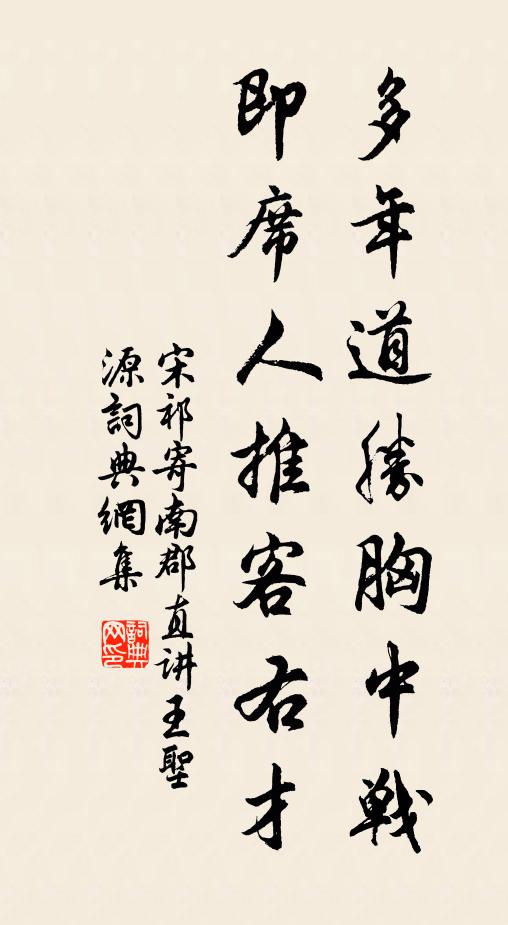 多年道勝胸中戦
即席人推客右才
宋祁寄南郡直讲王聖
源詞典網集
詞典网印